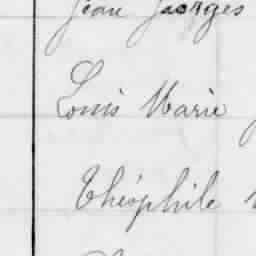 Jean Georges
Louis Marie
Théophile